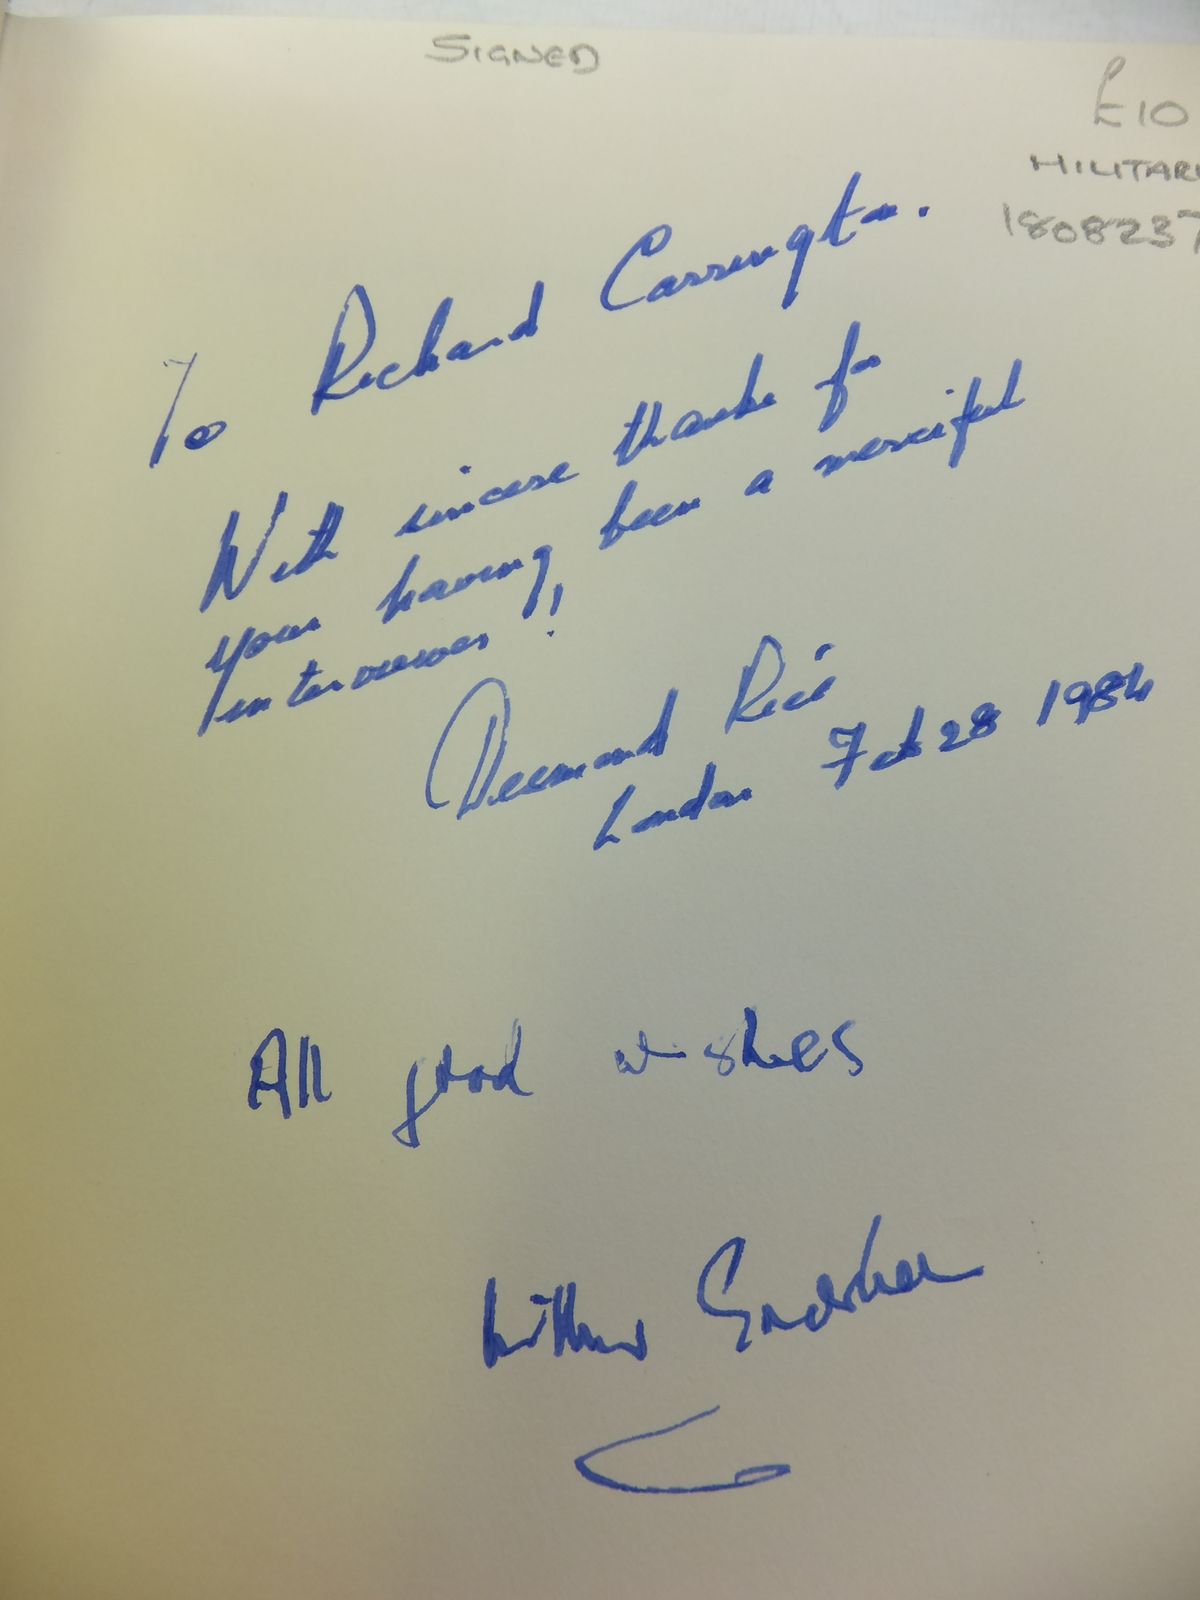 SIGNED
£10
MILITARY
1808237
To Richard Carrington.
With sincere thanks for
your having been a merciful
interviewer!
Desmond Rice
London Feb 28 1984
All good wishes
Arthur Gavshon